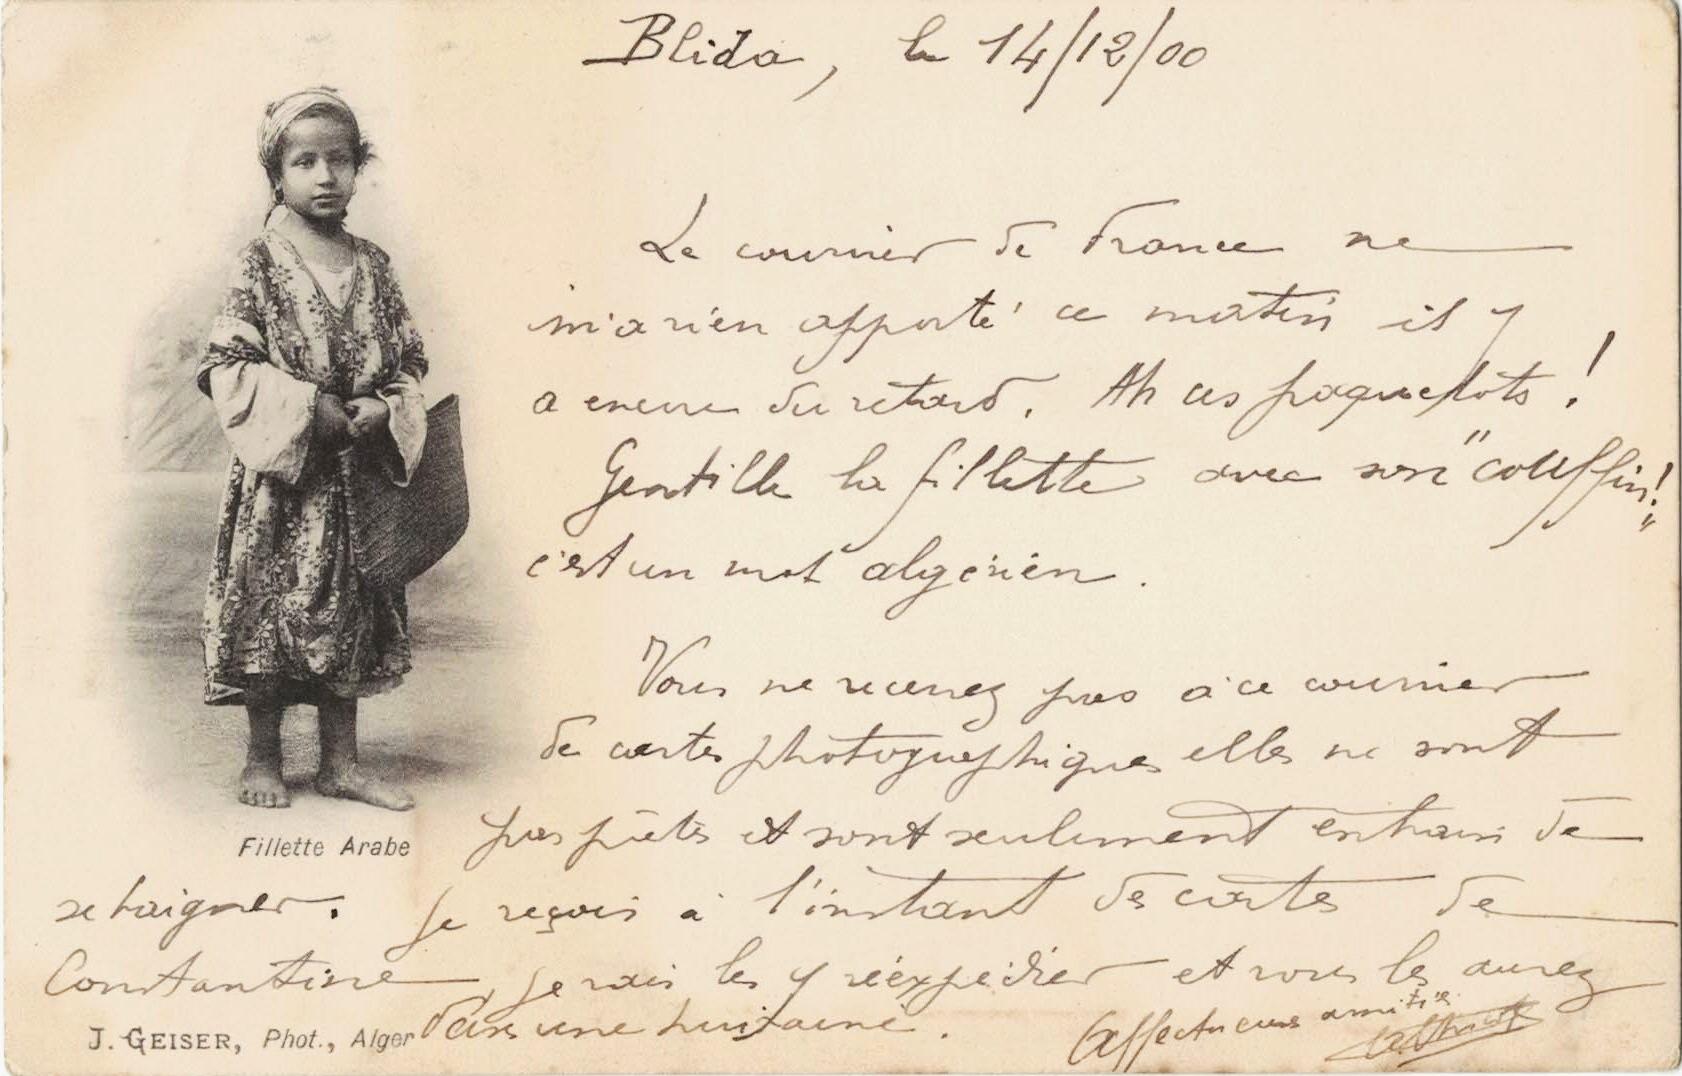 Blida, le 14/12/00
Le courrier de France ne
m'a rien apporté ce matin il y
a encore du retard. Ah ces paquebots !
Gentille la fillette avec son "couffin!"
c'est un mot algérien.
Vous ne recevrez pas à ce courrier
de cartes photographiques elles ne sont
pas prêtes et sont seulement entrain de
se baigner. Je reçois à l'instant des cartes de
Constantine, je vais les y réexpédier et vous les aurez
dans une huitaine.
Affectueuses amitiés
Fillette Arabe
J. GEISER, Phot., Alger